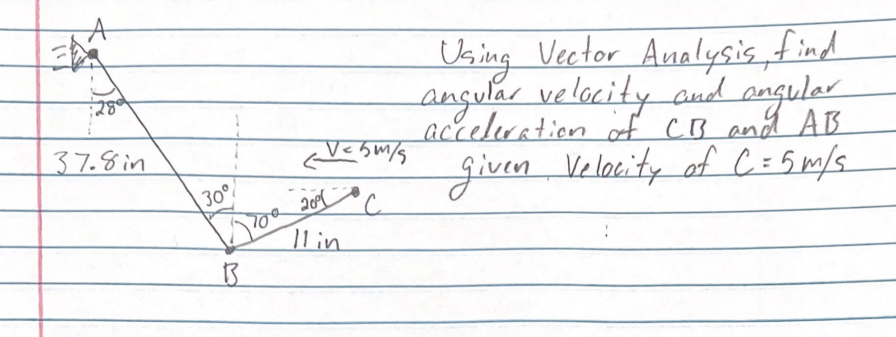 A
Using Vector Analysis, find
angular velocity and angular
28°
acceleration of CB and AB
V=5m/s
37.8in
given Velocity of C=5m/s
30°
20°
C
70°
11in
B